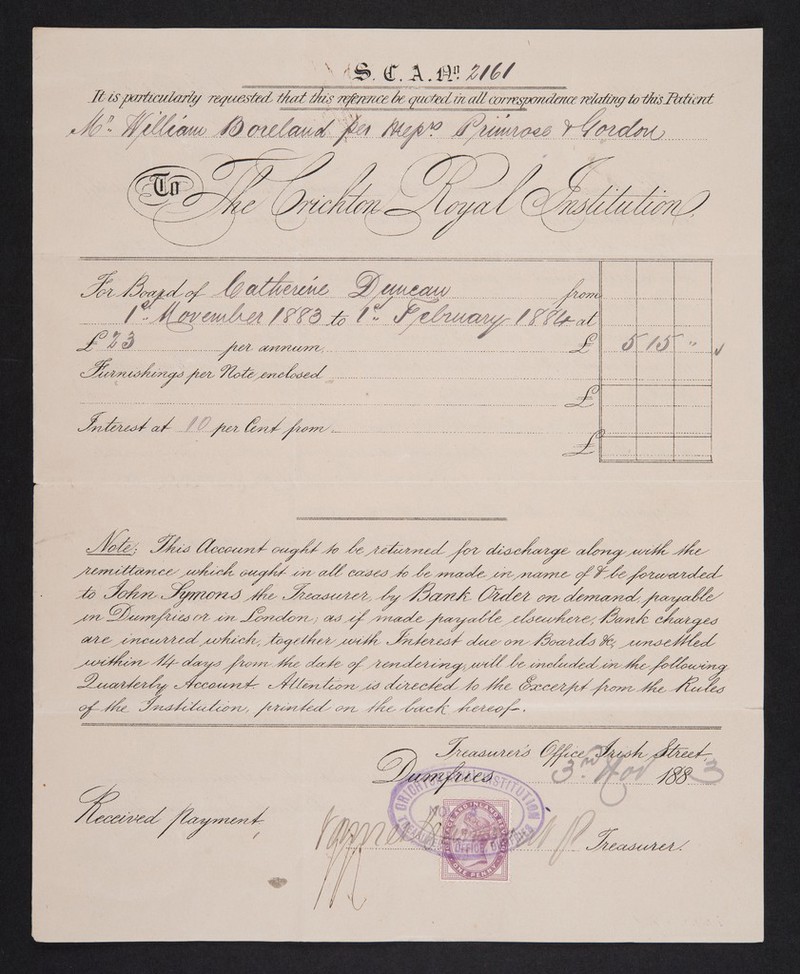 S. C. A. No. 2161
It is particularly requested that this reference be quoted in all correspondence relating to this Patient
Mr. William Boreland per Messrs Primrose & Gordon
To The Crichton Royal Institution,
For Board of Catherine Duncan from
1st November 1883 to 1st February 1884 at
£23 per annum, £ 5 15 "
Furnishings per Note enclosed
£
Interest at 10 per Cent from
£
Note; This Account ought to be returned for discharge along with the
remittance, which ought in all cases to be made in name of & be forwarded
to John Symons the Treasurer, by Bank Order on demand, payable
in Dumfries or in London; as if made payable elsewhere, Bank charges
are incurred which, together with Interest due on Boards &c, unsettled
within 14 days from the date of rendering, will be included in the following
Quarterly Account. Attention is directed to the Excerpt from the Rules
of the Institution, printed on the back hereof.
Treasurer's Office, Irish Street,
Dumfries 3rd Nov 1883
Received Payment,
Treasurer.
ONE PENNY